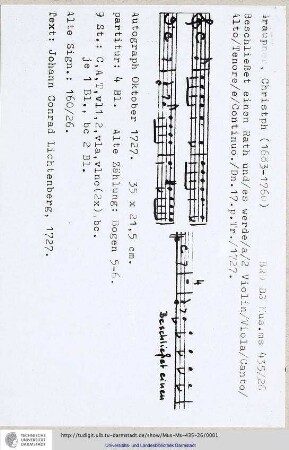 Graupner, Christph (1683-1760) BRD DS Mus.ms 435/26
Beschließet einen Rath und/es werde/a/2 Violin/Viola/Canto/
Alto/Tenore/e/Continuo./Dn.17.p.Tr./1727.
4
Beschließet einen
Autograph Oktober 1727. 35 x 21,5 cm.
partitur: 4 Bl. Alte Zählung: Bogen 5-6.
9 St.: C,A,T,vl 1,2,vla,vlnc(2x),bc.
je 1 Bl., bc 2 Bl.
Alte Sign.: 160/26.
Text: Johann Conrad Lichtenberg, 1727.
TECHNISCHE
UNIVERSITÄT
DARMSTADT
http://tudigit.ulb.tu-darmstadt.de/show/Mus-Ms-435-26/0001
Universitäts- und Landesbibliothek Darmstadt